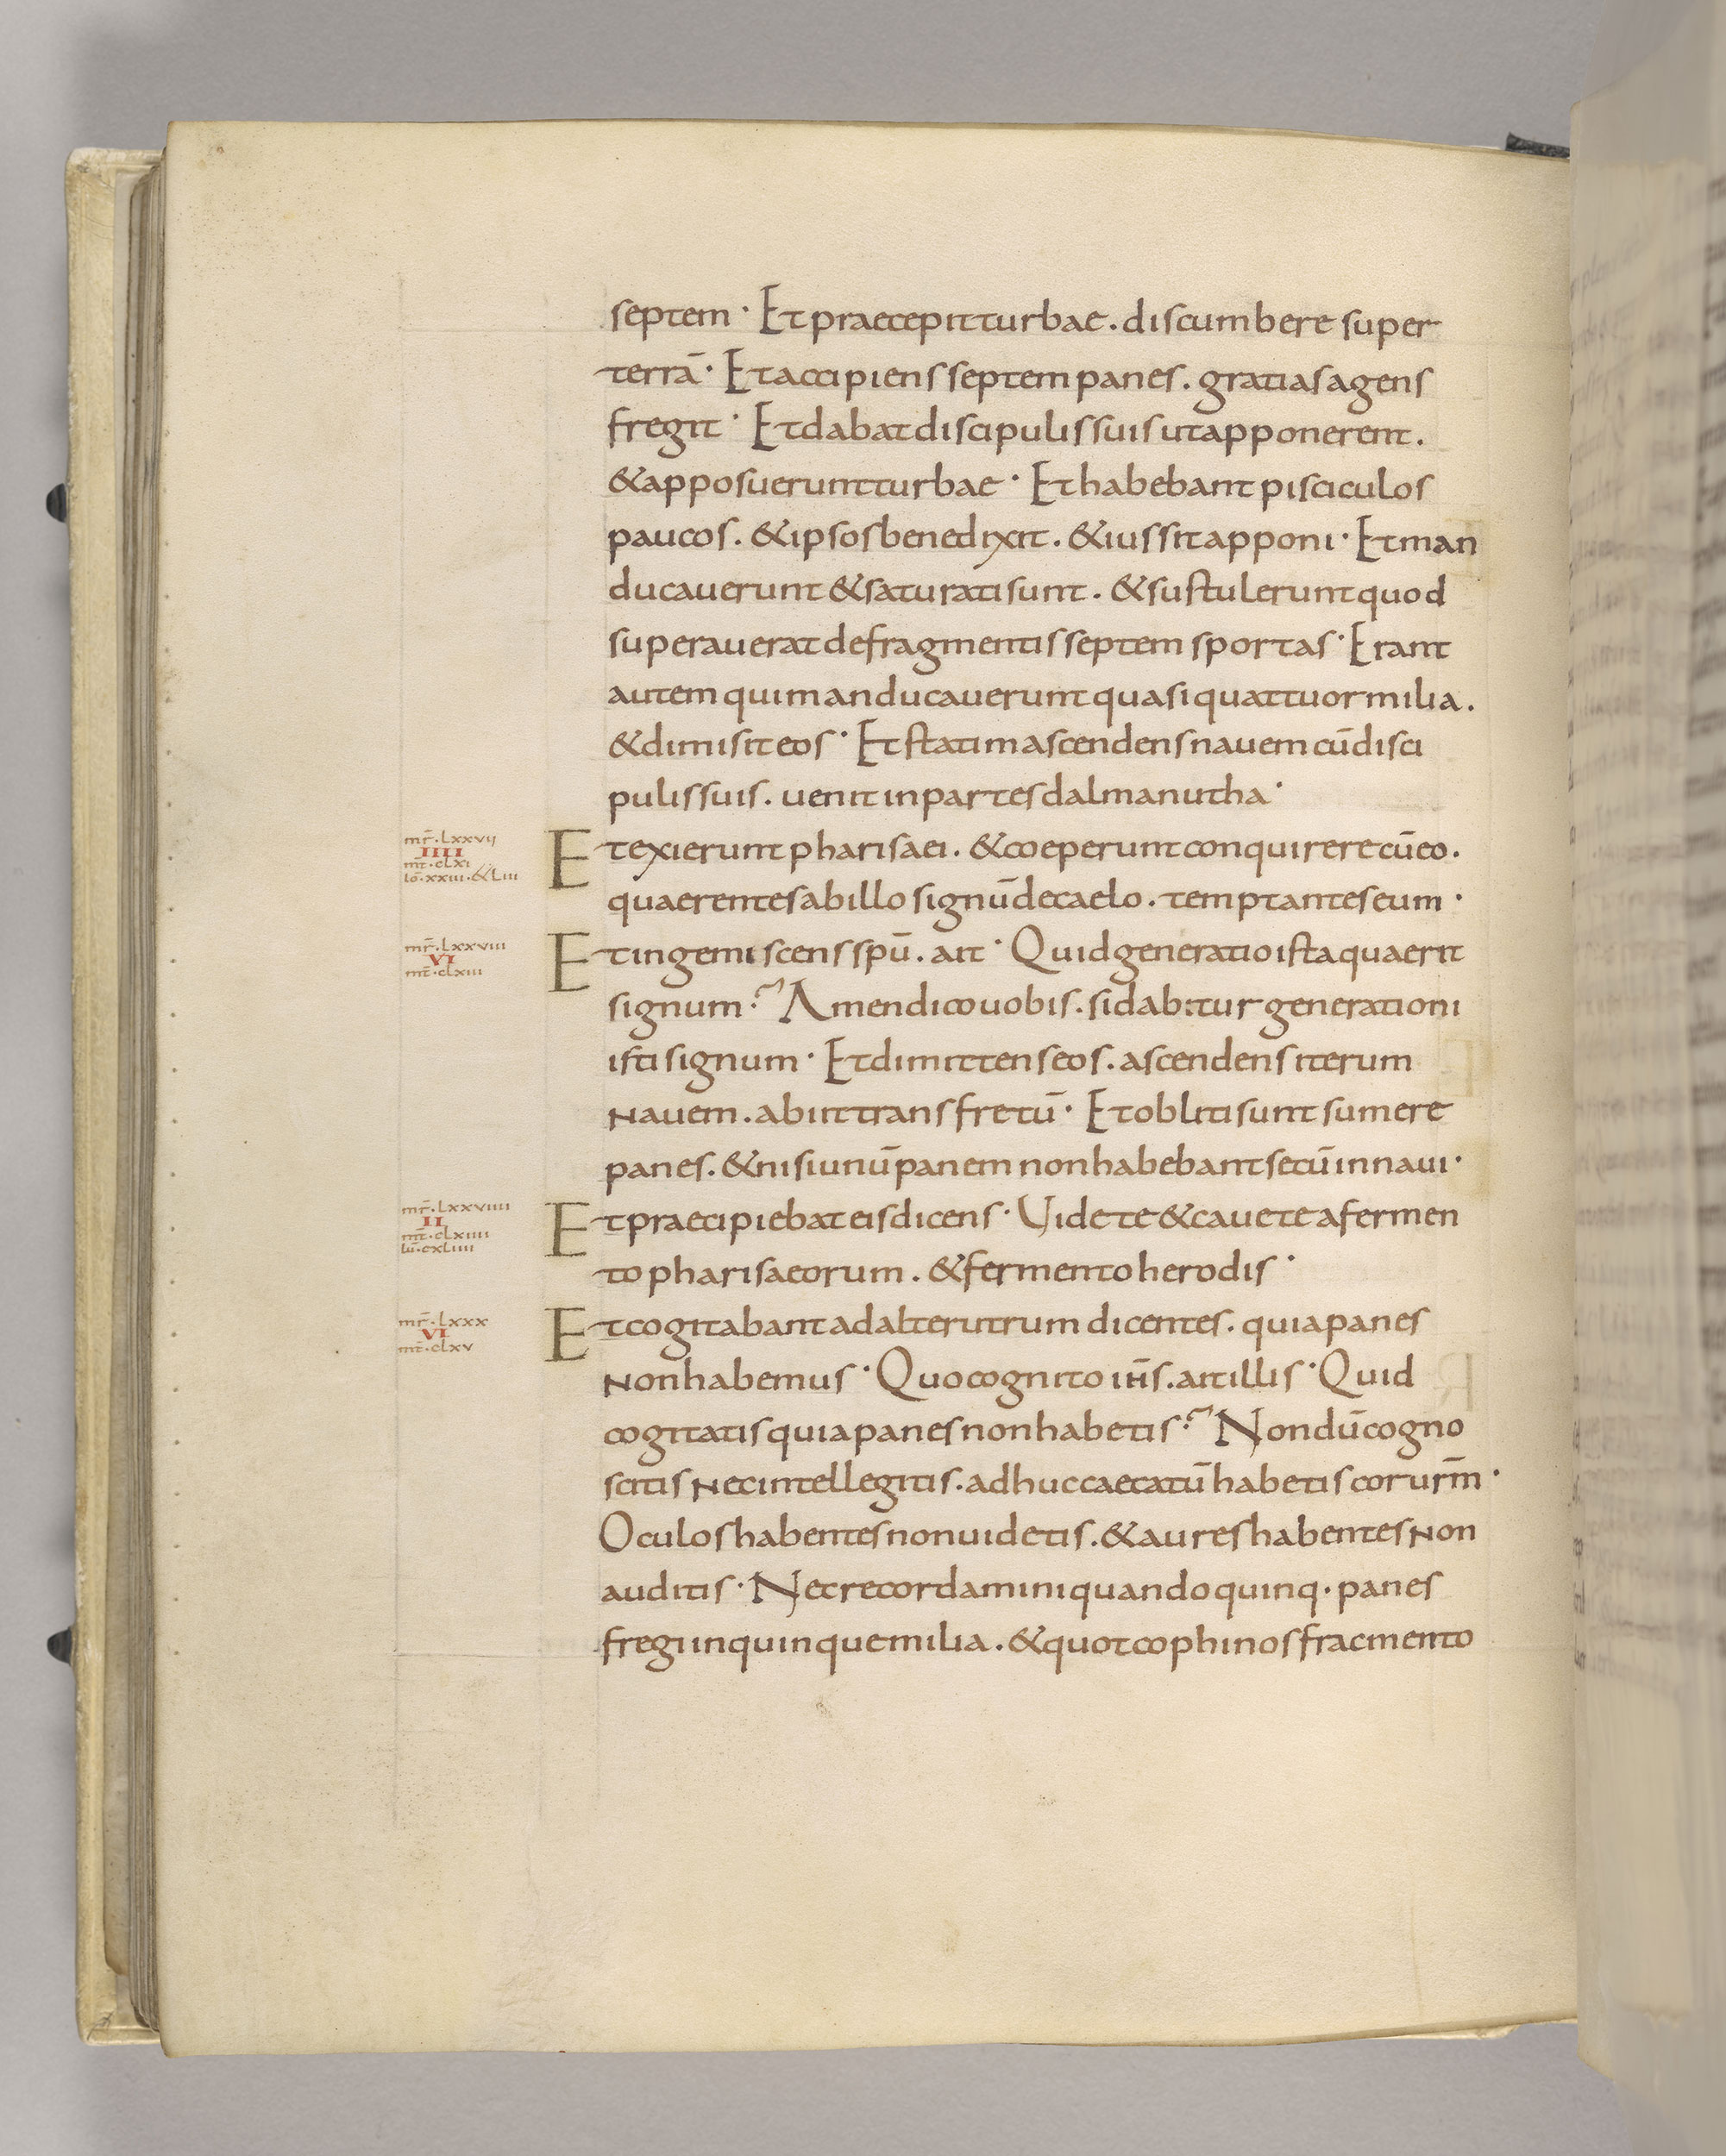 septem · Et praecepit turbae . discumbere super
terrā · Et accipiens septem panes . gratias agens
fregit · Et dabat discipulis suis ut apponerent .
& apposuerunt turbae · Et habebant pisciculos
paucos . & ipsos benedixit . & iussit apponi · Et man
ducauerunt & saturati sunt . & sustulerunt quod
superauerat de fragmentis septem sportas · Erant
autem qui manducauerunt quasi quattuor milia .
& dimisit eos · Et statim ascendens nauem cū disci
pulis suis . uenit in partes dalmanutha ·
mr̄ · lxxvij
IIII
mt̄ · clxi
iō · xxiii · & liii
Et exierunt pharisaei . & coeperunt conquirere cū eo .
quaerentes ab illo signū de caelo . temptantes eum ·
mr̄ · lxxviii
VI
mt̄ · clxiii
Et ingemiscens spū . ait · Quid generatio ista quaerit
signum ·? Amen dico uobis . si dabitur generationi
isti signum · Et dimittens eos . ascendens iterum
nauem . abiit trans fretū · Et obliti sunt sumere
panes . & nisi unū panem non habebant secū in naui ·
mr̄ · lxxviiii
II
mt̄ · clxiiii
lū · cxliiii
Et praecipiebat eis dicens · Uidete & cauete a fermen
to pharisaeorum . & fermento herodis ·
mr̄ · lxxx
VI
mt̄ · clxv
Et cogitabant ad alterutrum dicentes . quia panes
non habemus · Quo cognito ih̄s . ait illis · Quid
cogitatis quia panes non habetis ·? Nondū cogno
scitis nec intellegitis . adhuc caecatū habetis cor urm̄ ·
Oculos habentes non uidetis . & aures habentes non
auditis · Nec recordamini quando quinq · panes
fregi in quinque milia . & quot cophinos fracmento